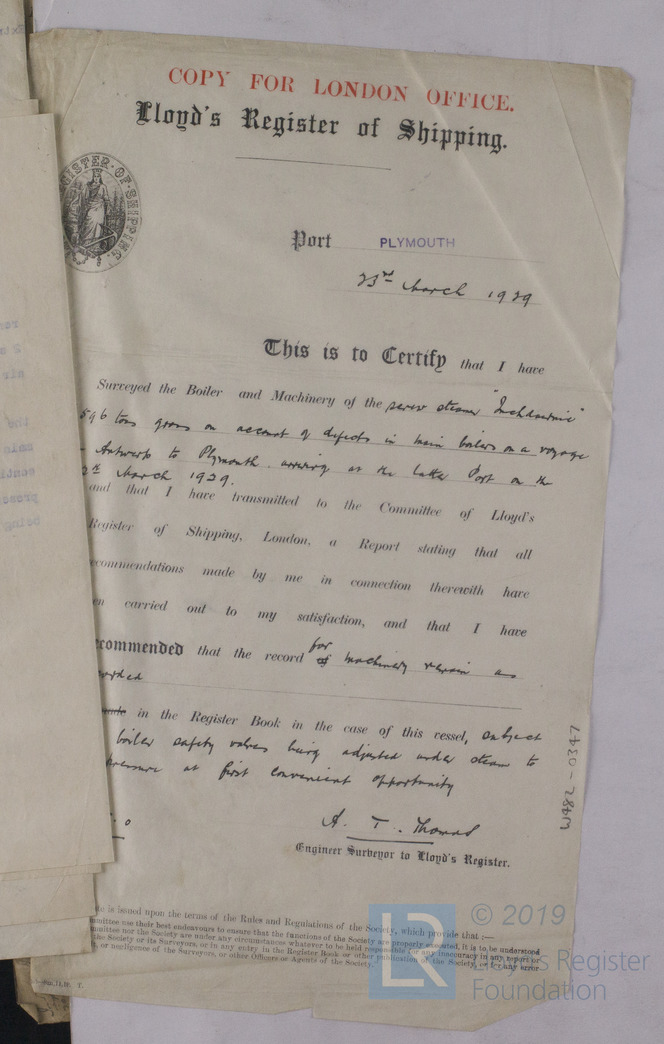 COPY FOR LONDON OFFICE.
Lloyd's Register of Shipping.
REGISTER·OF·SHIPPING.
Port PLYMOUTH
23rd March 1929
This is to Certify that I have
Surveyed the Boiler and Machinery of the screw steamer "
596 tons gross on account of defects in main boilers on a voyage
- Antwerp to Plymouth. arriving at the latter Port on the
March 1929.
and that I have transmitted to the Committee of Lloyd's
Register of Shipping, London, a Report stating that all
ecommendations made by me in connection therewith have
en carried out to my satisfaction, and that I have
ecommended that the record of for machinery remain as
in the Register Book in the case of this vessel, subject
boiler safety valves being adjusted under steam to
pressure at first convenient opportunity
A. T. Thomas
Engineer Surveyor to Lloyd's Register.
W482-0347
te is issued upon the terms of the Rules and Regulations of the Society, which provide that :—
mmittee use their best endeavours to ensure that the functions of the Society are properly executed, it is to be understood
mmittee nor the Society are under any circumstances whatever to be held responsible for any inaccuracy in any report or
the Society or its Surveyors, or in any entry in the Register Book or other publication of the Society, or for any error
, or negligence of the Surveyors, or other Officers or Agents of the Society."
© 2019
LR
Lloyd's Register
Foundation